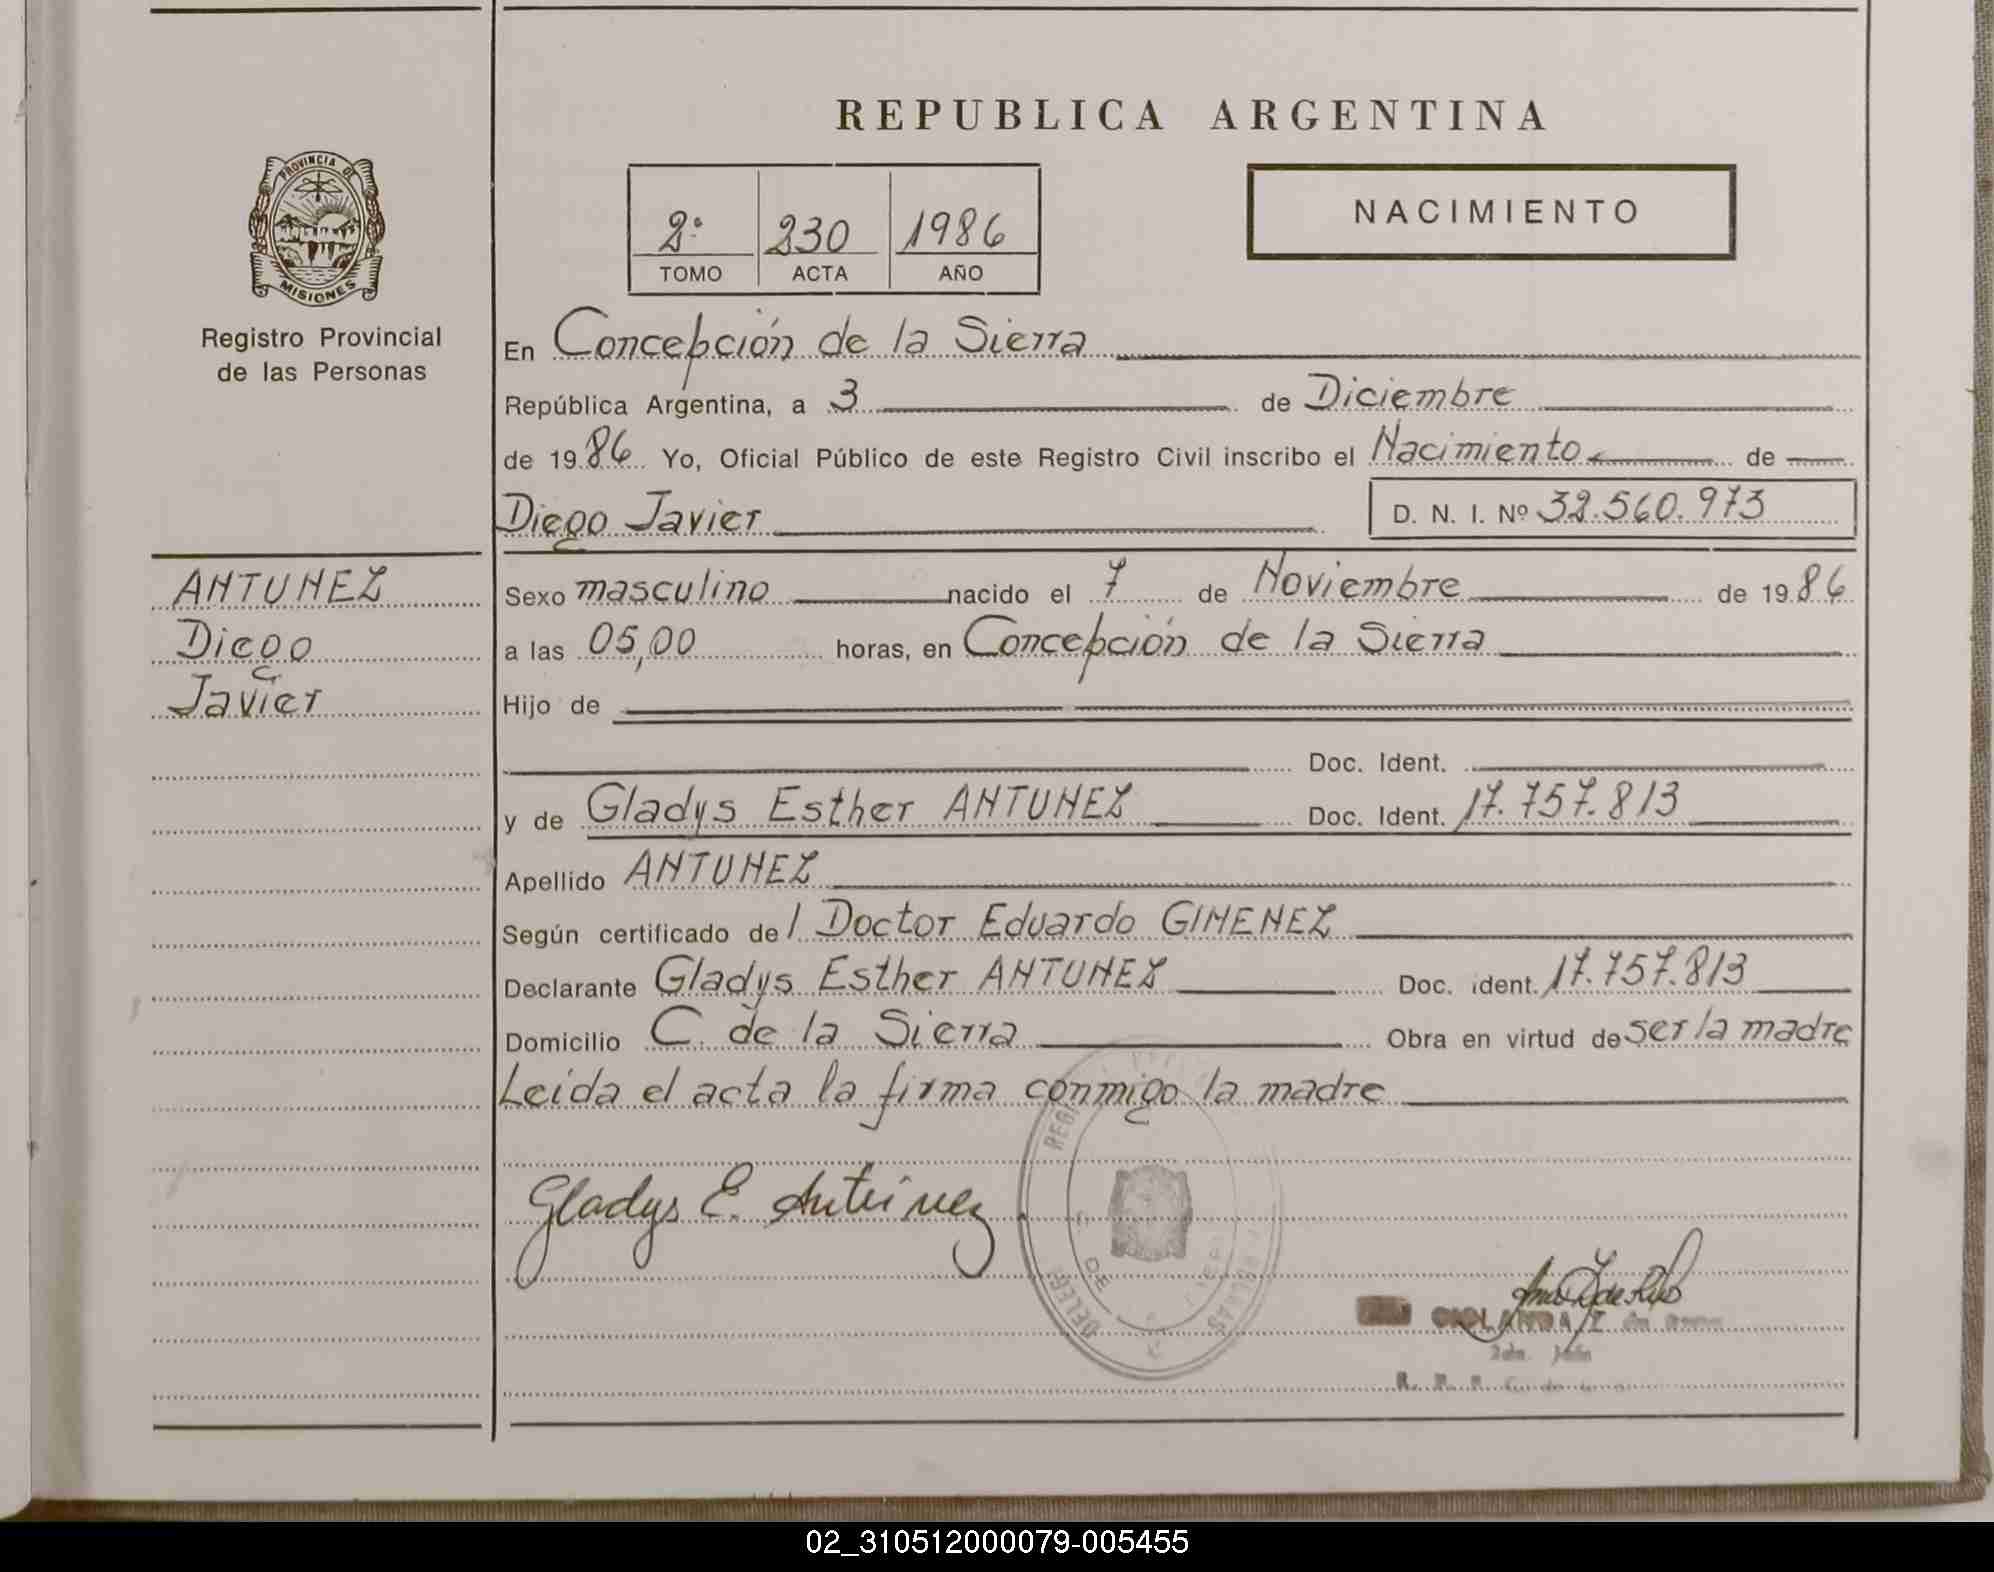 REPUBLICA ARGENTINA
PROVINCIA DE
MISIONES
Registro Provincial
de las Personas
2º 230 1986
TOMO ACTA AÑO
NACIMIENTO
En Concepción de la Sierra
República Argentina, a 3 de Diciembre
de 1986 Yo, Oficial Público de este Registro Civil inscribo el Nacimiento de
Diego Javier D. N. I. Nº 32.560.973
ANTUNEZ
Diego
Javier
Sexo masculino nacido el 7 de Noviembre de 1986
a las 05,00 horas, en Concepción de la Sierra
Hijo de
Doc. Ident.
y de Gladys Esther ANTUNEZ Doc. Ident. 17.757.813
Apellido ANTUNEZ
Según certificado de l Doctor Eduardo GIMENEZ
Declarante Gladys Esther ANTUNEZ Doc. ident. 17.757.813
Domicilio C. de la Sierra Obra en virtud de ser la madre
Leída el acta la firma conmigo la madre
Gladys E. Antúnez
02_310512000079-005455